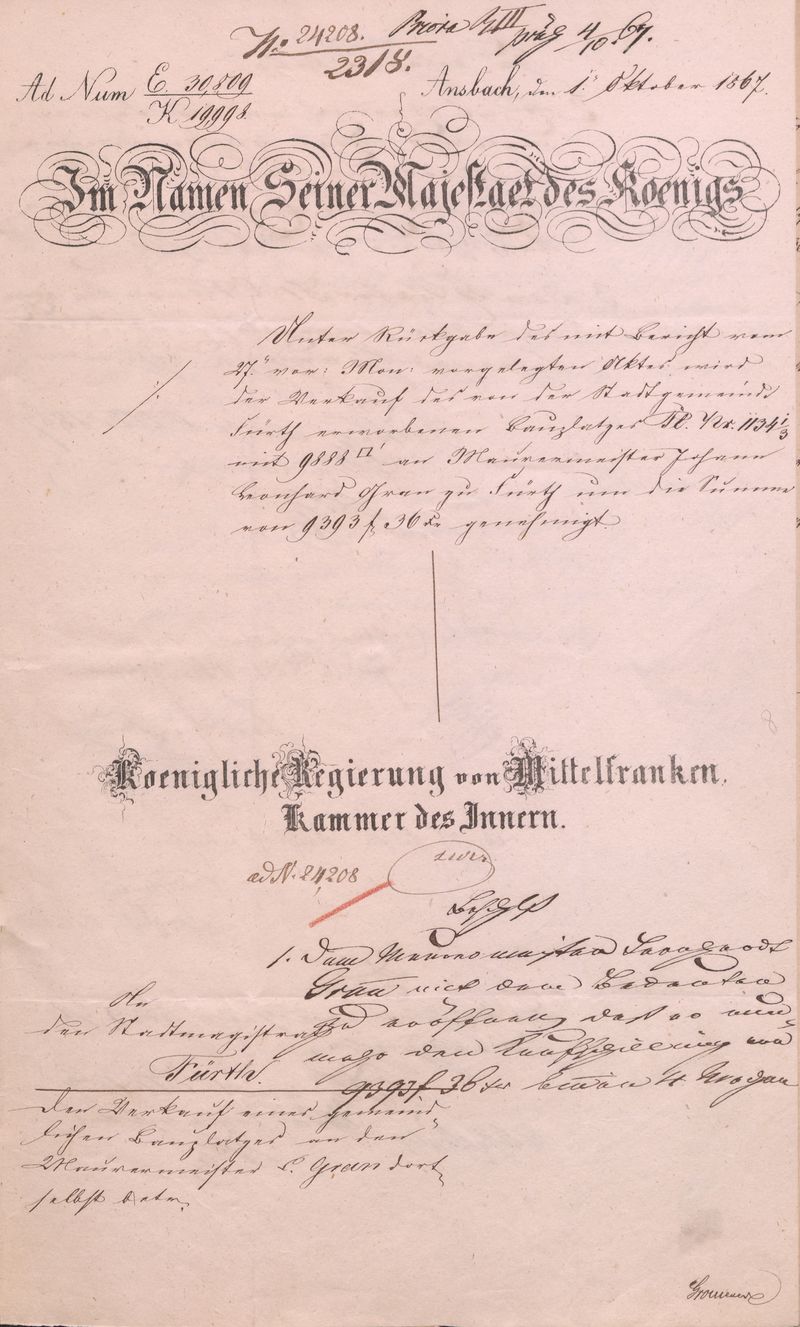 No. 24208.
2318.
4/10. 67.
Ad Num E. 30,809
K 19998.
Ansbach, den 1. Oktober 1867.
Im Namen Seiner Majestaet des Koenigs
Unter Rückgabe des mit Bericht vom
27. vor: Mon: vorgelegten Aktes wird
der Verkauf des von der Stadtgemeinde
Fürth erworbenen Bauplatzes Pl. Nr. 1134 1/3
mit 9888 □' an Maurermeister Johann
Leonhard Gran zu Fürth um die Summe
von 9393 f 36 xr genehmigt.
Koenigliche Regierung von Mittelfranken,
Kammer des Innern.
ad N. 24,208
Beschluß
1. Dem Maurermeister Leonhardt
Gran mit dem Bedeuten
zu eröffnen, daß er nun-
mehr den Kaufschilling von
9393 f 36 xr binnen 4 Wochen
An
den Stadtmagistrat
Fürth.
Den Verkauf eines gemeind-
lichen Bauplatzes an den
Maurermeister L. Gran dort-
selbst betr.